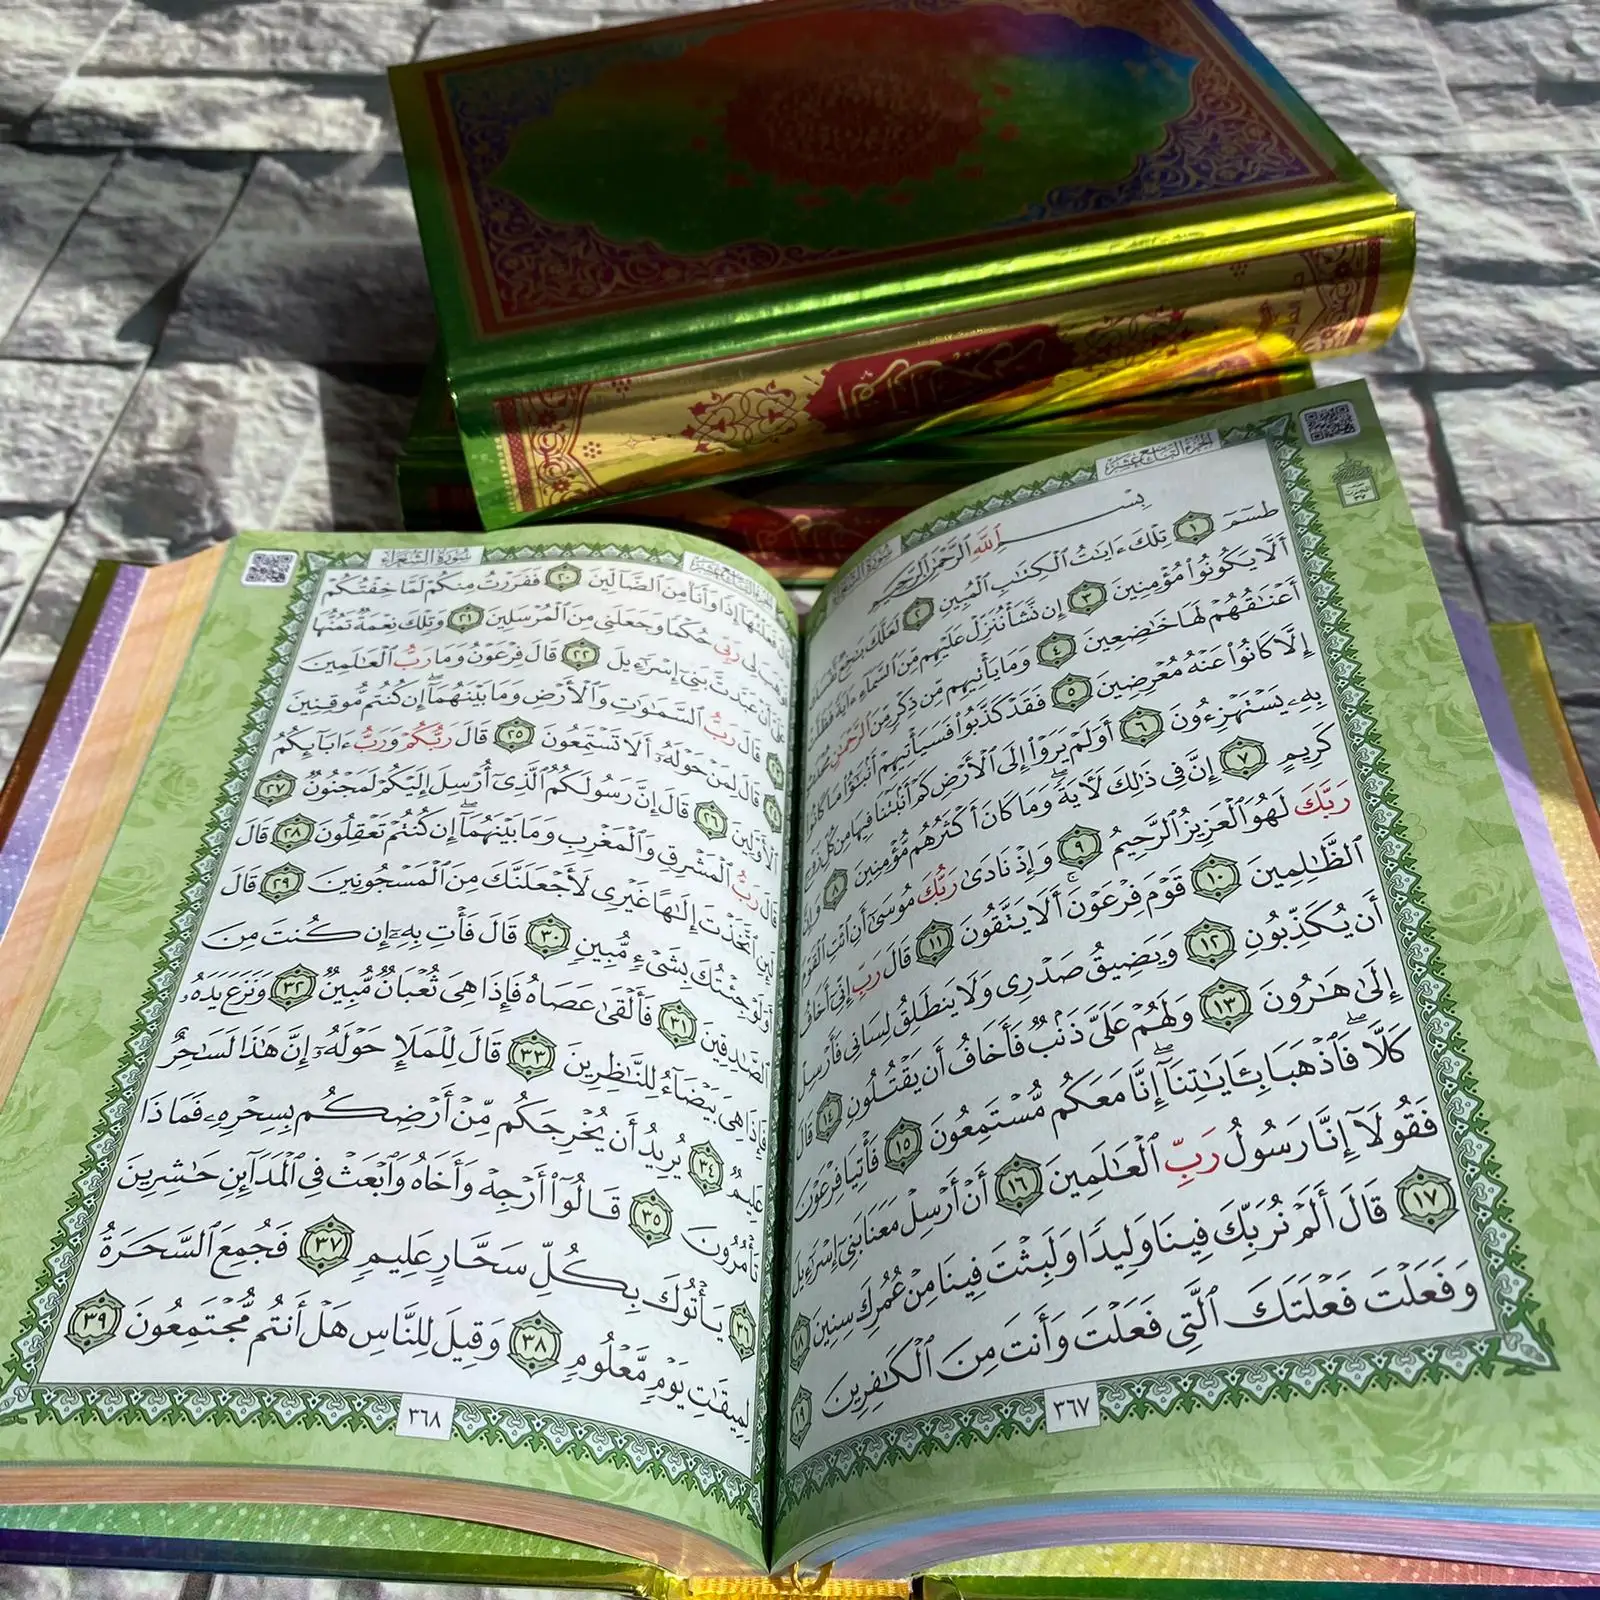 سُورَةُ الشُّعَرَاءِ
الجُزْءُ التَّاسِعَ عَشَرَ
بِسْمِ ٱللَّهِ ٱلرَّحْمَٰنِ ٱلرَّحِيمِ
طسٓمٓ ١ تِلْكَ ءَايَٰتُ ٱلْكِتَٰبِ ٱلْمُبِينِ ٢ لَعَلَّكَ بَٰخِعٌ نَّفْسَكَ
أَلَّا يَكُونُوا۟ مُؤْمِنِينَ ٣ إِن نَّشَأْ نُنَزِّلْ عَلَيْهِم مِّنَ ٱلسَّمَآءِ ءَايَةً فَظَلَّتْ
أَعْنَٰقُهُمْ لَهَا خَٰضِعِينَ ٤ وَمَا يَأْتِيهِم مِّن ذِكْرٍ مِّنَ ٱلرَّحْمَٰنِ مُحْدَثٍ
إِلَّا كَانُوا۟ عَنْهُ مُعْرِضِينَ ٥ فَقَدْ كَذَّبُوا۟ فَسَيَأْتِيهِمْ أَنۢبَٰٓؤُا۟ مَا كَانُوا۟
بِهِۦ يَسْتَهْزِءُونَ ٦ أَوَلَمْ يَرَوْا۟ إِلَى ٱلْأَرْضِ كَمْ أَنۢبَتْنَا فِيهَا مِن كُلِّ زَوْجٍ
كَرِيمٍ ٧ إِنَّ فِى ذَٰلِكَ لَءَايَةً ۖ وَمَا كَانَ أَكْثَرُهُم مُّؤْمِنِينَ ٨ وَإِنَّ
رَبَّكَ لَهُوَ ٱلْعَزِيزُ ٱلرَّحِيمُ ٩ وَإِذْ نَادَىٰ رَبُّكَ مُوسَىٰٓ أَنِ ٱئْتِ ٱلْقَوْمَ
ٱلظَّٰلِمِينَ ١٠ قَوْمَ فِرْعَوْنَ ۚ أَلَا يَتَّقُونَ ١١ قَالَ رَبِّ إِنِّىٓ أَخَافُ
أَن يُكَذِّبُونِ ١٢ وَيَضِيقُ صَدْرِى وَلَا يَنطَلِقُ لِسَانِى فَأَرْسِلْ
إِلَىٰ هَٰرُونَ ١٣ وَلَهُمْ عَلَىَّ ذَنۢبٌ فَأَخَافُ أَن يَقْتُلُونِ ١٤ قَالَ
كَلَّا ۖ فَٱذْهَبَا بِـَٔايَٰتِنَآ ۖ إِنَّا مَعَكُم مُّسْتَمِعُونَ ١٥ فَأْتِيَا فِرْعَوْنَ
فَقُولَآ إِنَّا رَسُولُ رَبِّ ٱلْعَٰلَمِينَ ١٦ أَنْ أَرْسِلْ مَعَنَا بَنِىٓ إِسْرَٰٓءِيلَ
١٧ قَالَ أَلَمْ نُرَبِّكَ فِينَا وَلِيدًا وَلَبِثْتَ فِينَا مِنْ عُمُرِكَ سِنِينَ ١٨
وَفَعَلْتَ فَعْلَتَكَ ٱلَّتِى فَعَلْتَ وَأَنتَ مِنَ ٱلْكَٰفِرِينَ ١٩
٣٦٧
الجُزْءُ التَّاسِعَ عَشَرَ
سُورَةُ الشُّعَرَاءِ
قَالَ فَعَلْتُهَآ إِذًا وَأَنَا۠ مِنَ ٱلضَّآلِّينَ ٢٠ فَفَرَرْتُ مِنكُمْ لَمَّا خِفْتُكُمْ
فَوَهَبَ لِى رَبِّى حُكْمًا وَجَعَلَنِى مِنَ ٱلْمُرْسَلِينَ ٢١ وَتِلْكَ نِعْمَةٌ تَمُنُّهَا
عَلَىَّ أَنْ عَبَّدتَّ بَنِىٓ إِسْرَٰٓءِيلَ ٢٢ قَالَ فِرْعَوْنُ وَمَا رَبُّ ٱلْعَٰلَمِينَ
٢٣ قَالَ رَبُّ ٱلسَّمَٰوَٰتِ وَٱلْأَرْضِ وَمَا بَيْنَهُمَآ ۖ إِن كُنتُم مُّوقِنِينَ
٢٤ قَالَ لِمَنْ حَوْلَهُۥٓ أَلَا تَسْتَمِعُونَ ٢٥ قَالَ رَبُّكُمْ وَرَبُّ ءَابَآئِكُمُ
ٱلْأَوَّلِينَ ٢٦ قَالَ إِنَّ رَسُولَكُمُ ٱلَّذِىٓ أُرْسِلَ إِلَيْكُمْ لَمَجْنُونٌ ٢٧
قَالَ رَبُّ ٱلْمَشْرِقِ وَٱلْمَغْرِبِ وَمَا بَيْنَهُمَآ ۖ إِن كُنتُمْ تَعْقِلُونَ ٢٨ قَالَ
لَئِنِ ٱتَّخَذْتَ إِلَٰهًا غَيْرِى لَأَجْعَلَنَّكَ مِنَ ٱلْمَسْجُونِينَ ٢٩ قَالَ
أَوَلَوْ جِئْتُكَ بِشَىْءٍ مُّبِينٍ ٣٠ قَالَ فَأْتِ بِهِۦٓ إِن كُنتَ مِنَ
ٱلصَّٰدِقِينَ ٣١ فَأَلْقَىٰ عَصَاهُ فَإِذَا هِىَ ثُعْبَانٌ مُّبِينٌ ٣٢ وَنَزَعَ يَدَهُۥ
فَإِذَا هِىَ بَيْضَآءُ لِلنَّٰظِرِينَ ٣٣ قَالَ لِلْمَلَإِ حَوْلَهُۥٓ إِنَّ هَٰذَا لَسَٰحِرٌ
عَلِيمٌ ٣٤ يُرِيدُ أَن يُخْرِجَكُم مِّنْ أَرْضِكُم بِسِحْرِهِۦ فَمَاذَا
تَأْمُرُونَ ٣٥ قَالُوٓا۟ أَرْجِهْ وَأَخَاهُ وَٱبْعَثْ فِى ٱلْمَدَآئِنِ حَٰشِرِينَ
٣٦ يَأْتُوكَ بِكُلِّ سَحَّارٍ عَلِيمٍ ٣٧ فَجُمِعَ ٱلسَّحَرَةُ
لِمِيقَٰتِ يَوْمٍ مَّعْلُومٍ ٣٨ وَقِيلَ لِلنَّاسِ هَلْ أَنتُم مُّجْتَمِعُونَ ٣٩
٣٦٨